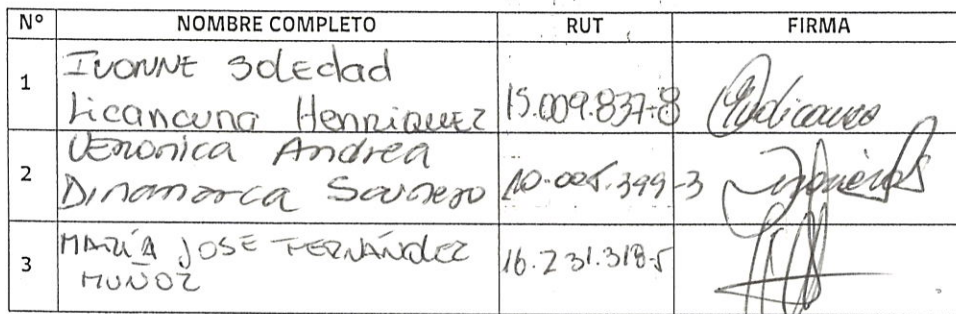 N° NOMBRE COMPLETO RUT FIRMA
1 Ivonne Soledad
Licancura Henriquez 15.009.837-8
2 Veronica Andrea
Dinamarca 10.005.399-3
3 MARÍA JOSE FERNÁNDEZ
MUÑOZ 16.231.318-5